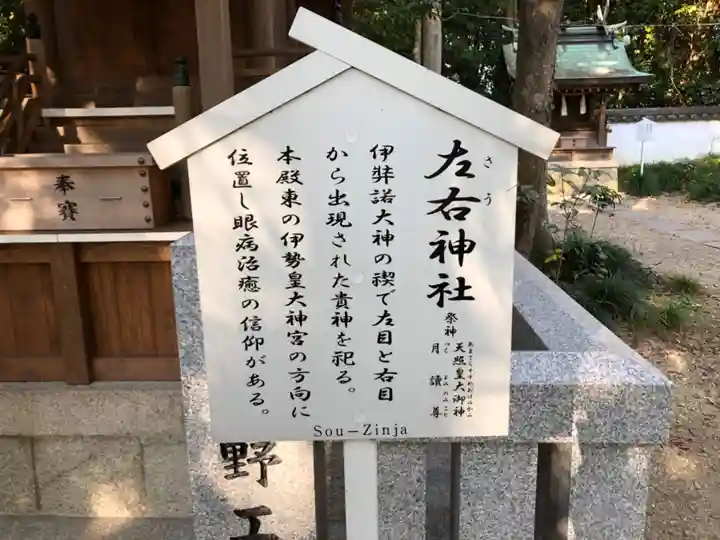 左右神社
さう
祭神
天照皇大御神
あまてらすすめおほみかみ
月讀尊
つきよみのみこと
伊弉諾大神の禊で左目と右目
から出現された貴神を祀る。
本殿東の伊勢皇大神宮の方向に
位置し眼病治癒の信仰がある。
Sou-Zinja
奉賽
野